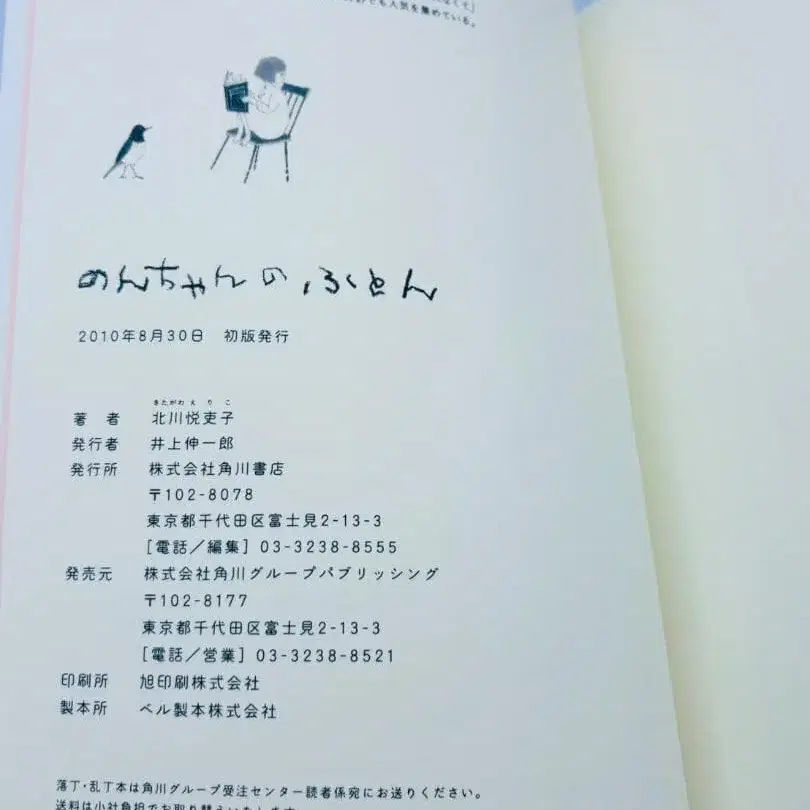 でも人気を集めている。
のんちゃんのふとん
2010年8月30日 初版発行
きたがわえりこ
著者 北川悦吏子
発行者 井上伸一郎
発行所 株式会社角川書店
〒102-8078
東京都千代田区富士見2-13-3
[電話/編集] 03-3238-8555
発売元 株式会社角川グループパブリッシング
〒102-8177
東京都千代田区富士見2-13-3
[電話/営業] 03-3238-8521
印刷所 旭印刷株式会社
製本所 ベル製本株式会社
落丁・乱丁本は角川グループ受注センター読者係宛にお送りください。
送料は小社負担でお取り替えいたします